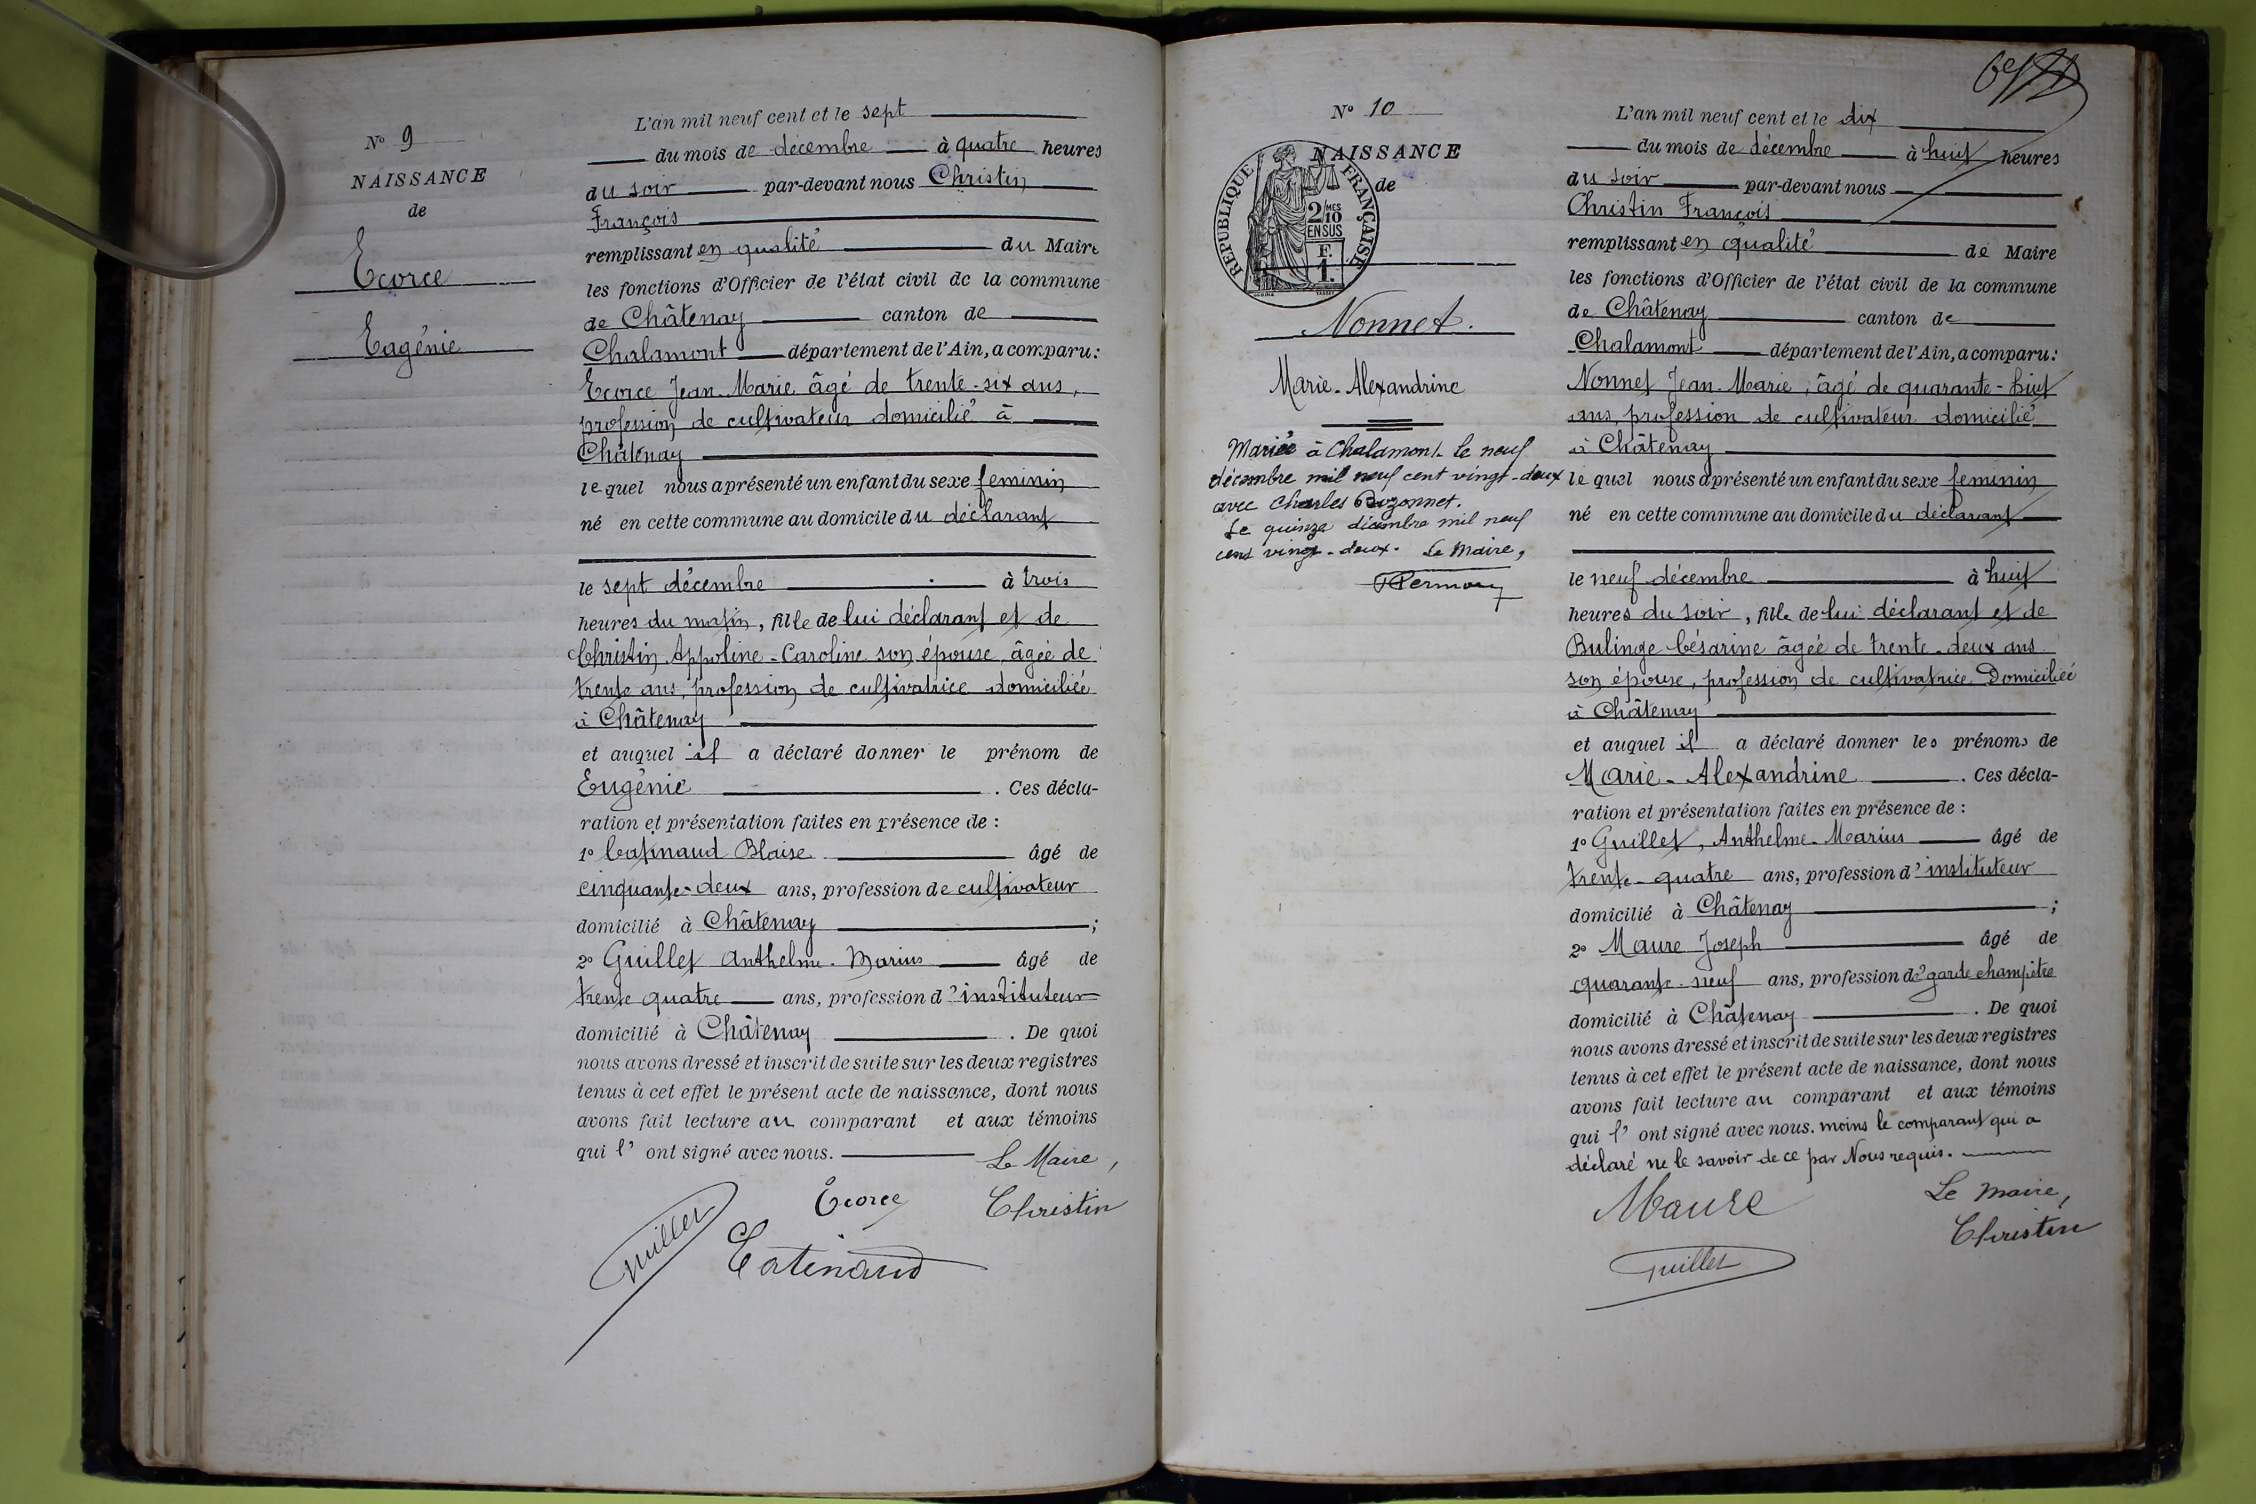 N° 9
NAISSANCE
de
Ecorce
Eugénie
L'an mil neuf cent et le sept
du mois de décembre à quatre heures
du soir par-devant nous Christin
François
remplissant en qualité du Maire
les fonctions d'Officier de l'état civil de la commune
de Châtenay canton de
Chalamont département de l'Ain, a comparu:
Ecorce Jean-Marie, âgé de trente-six ans,
profession de cultivateur domicilié à
Châtenay
lequel nous a présenté un enfant du sexe feminin
né en cette commune au domicile du déclarant
le sept décembre à trois
heures du matin, fille de lui déclarant et de
Christin Appoline-Caroline son épouse, âgée de
trente ans, profession de cultivatrice domiciliée
à Châtenay
et auquel il a déclaré donner le prénom de
Eugénie. Ces décla-
ration et présentation faites en présence de :
1° Catinaud Blaise âgé de
cinquante-deux ans, profession de cultivateur
domicilié à Châtenay ;
2° Guillet Anthelme-Marius âgé de
trente quatre ans, profession d'instituteur
domicilié à Châtenay. De quoi
nous avons dressé et inscrit de suite sur les deux registres
tenus à cet effet le présent acte de naissance, dont nous
avons fait lecture au comparant et aux témoins
qui l'ont signé avec nous.
Le Maire,
Ecorce Christin
Guillet Catinaud
N° 10
NAISSANCE
de
REPUBLIQUE FRANÇAISE
2/10 MES
EN SUS
F.
1.
Nonnet.
Marie-Alexandrine
Mariée à Chalamont le neuf
décembre mil neuf cent vingt-deux
avec Charles Bozonnet.
Le quinze décembre mil neuf
cent vingt-deux. Le Maire,
L'an mil neuf cent et le dix
du mois de décembre à huit heures
du soir par-devant nous
Christin François
remplissant en qualité de Maire
les fonctions d'Officier de l'état civil de la commune
de Châtenay canton de
Chalamont département de l'Ain, a comparu:
Nonnet Jean-Marie, âgé de quarante-huit
ans, profession de cultivateur domicilié
à Châtenay
lequel nous a présenté un enfant du sexe feminin
né en cette commune au domicile du déclarant
le neuf décembre à huit
heures du soir, fille de lui déclarant et de
Bulinge Césarine âgée de trente-deux ans
son épouse, profession de cultivatrice Domiciliée
à Châtenay
et auquel il a déclaré donner les prénoms de
Marie-Alexandrine. Ces décla-
ration et présentation faites en présence de :
1° Guillet, Anthelme-Marius âgé de
trente-quatre ans, profession d'instituteur
domicilié à Châtenay ;
2° Maure Joseph âgé de
quarante-neuf ans, profession de garde champêtre
domicilié à Châtenay. De quoi
nous avons dressé et inscrit de suite sur les deux registres
tenus à cet effet le présent acte de naissance, dont nous
avons fait lecture au comparant et aux témoins
qui l'ont signé avec nous. moins le comparant qui a
déclaré ne le savoir de ce par Nous requis.
Maure Le Maire,
Guillet Christin